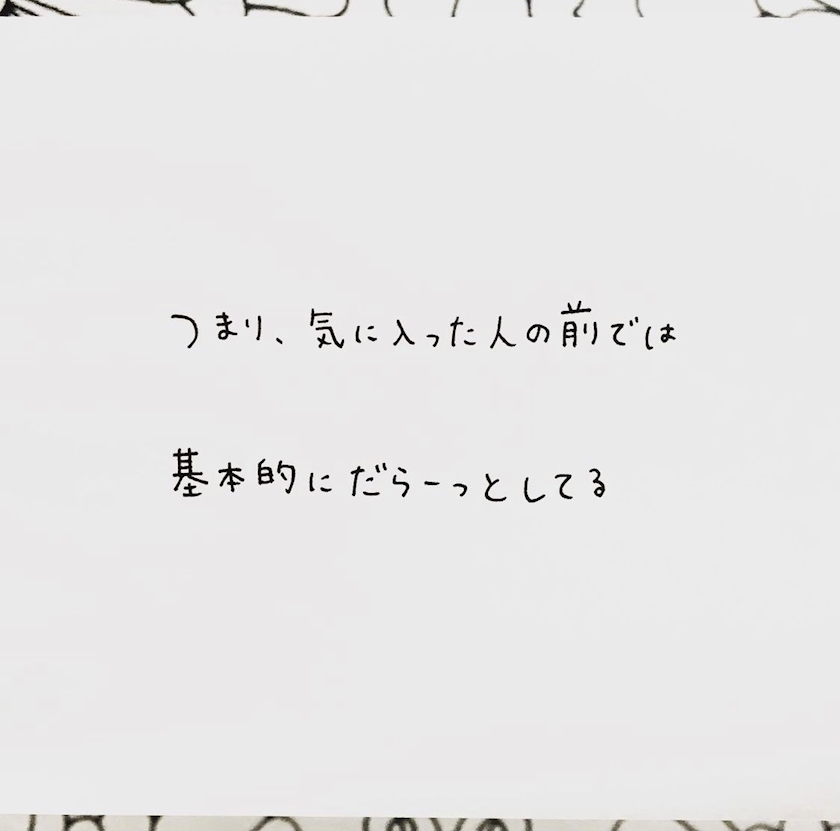 つまり、気に入った人の前では
基本的にだらーっとしてる